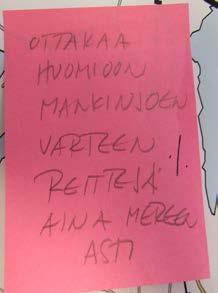 OTTAKAA
HUOMIOON
MANKINJOEN
VARTEEN
REITTEJÄ
AINA MEREEN
ASTI